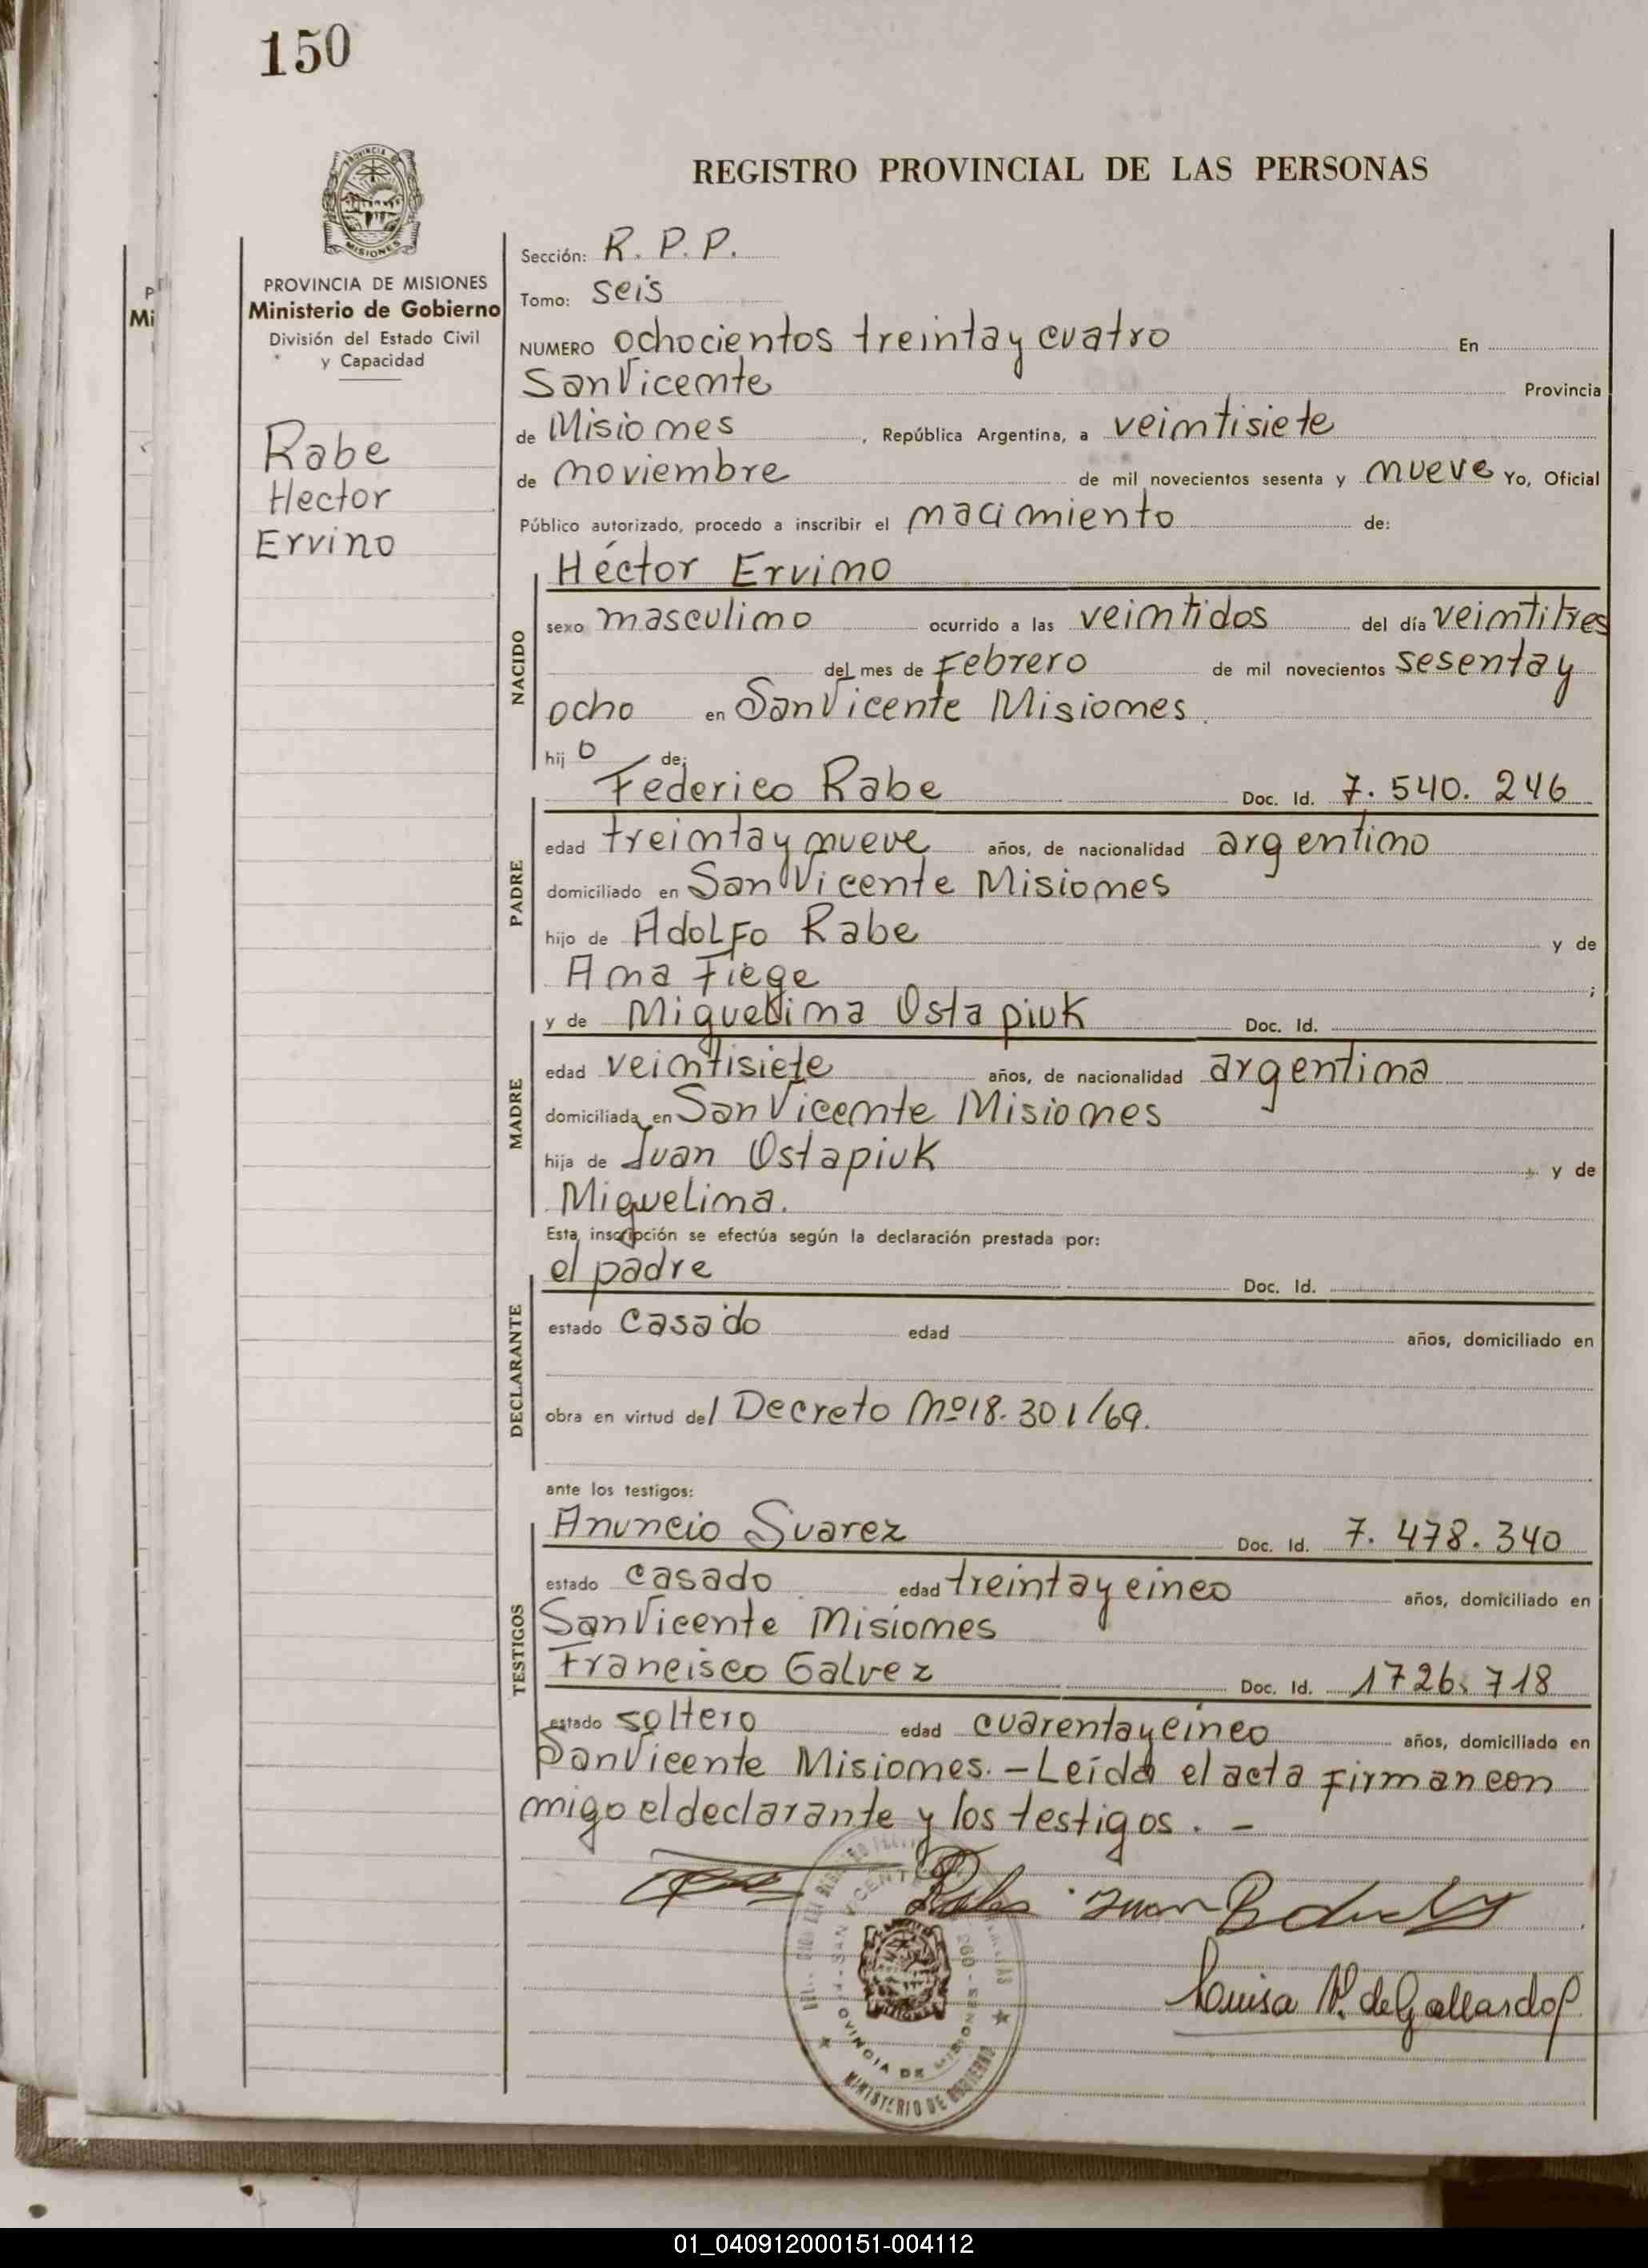 150
REGISTRO PROVINCIAL DE LAS PERSONAS
PROVINCIA DE MISIONES
Ministerio de Gobierno
División del Estado Civil
y Capacidad
Rabe
Hector
Ervino
Sección: R. P. P.
Tomo: seis
NUMERO ochocientos treinta y cuatro En
San Vicente Provincia
de Misiones, República Argentina, a veintisiete
de noviembre de mil novecientos sesenta y nueve Yo, Oficial
Público autorizado, procedo a inscribir el nacimiento de:
NACIDO
Héctor Ervino
sexo masculino ocurrido a las veintidos del día veintitres
del mes de Febrero de mil novecientos sesenta y
ocho en San Vicente Misiones.
hij o de:
PADRE
Federico Rabe Doc. Id. 7. 540. 246
edad treinta y nueve años, de nacionalidad argentino
domiciliado en San Vicente Misiones
hijo de Adolfo Rabe y de
Ana Fiege ;
MADRE
y de Miguelina Ostapiuk Doc. Id.
edad veintisiete años, de nacionalidad argentina
domiciliada en San Vicente Misiones
hija de Juan Ostapiuk y de
Miguelina.
Esta inscripción se efectúa según la declaración prestada por:
DECLARANTE
el padre Doc. Id.
estado casado edad años, domiciliado en
obra en virtud del Decreto Nº 18.301/69.
ante los testigos:
TESTIGOS
Anuncio Suarez Doc. Id. 7. 478. 340
estado casado edad treinta y cinco años, domiciliado en
San Vicente Misiones
Francisco Galvez Doc. Id. 1726.718
estado soltero edad cuarenta y cinco años, domiciliado en
San Vicente Misiones. - Leída el acta firman con
migo el declarante y los testigos. -
Luisa N. de Gallardo
SAN VICENTE
PROVINCIA DE MISIONES
MINISTERIO DE GOBIERNO
01_040912000151-004112